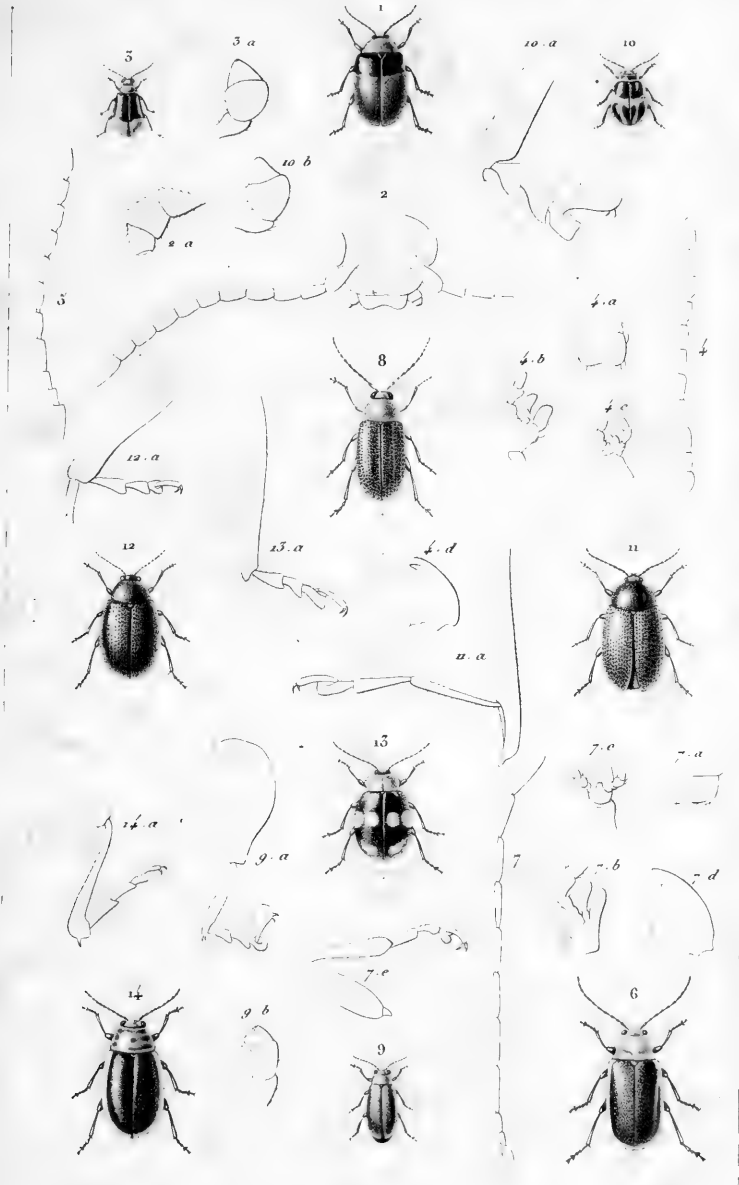 1
3
3 a
10. a
10
10 b
2
2 a
3
4. a
4
8
4. b
4 c
12. a
12
13. a
4. d
11
11. a
13
7. c
7. a
14. a
9. a
7
7. b
7 d
7. e
14
9 b
6
9